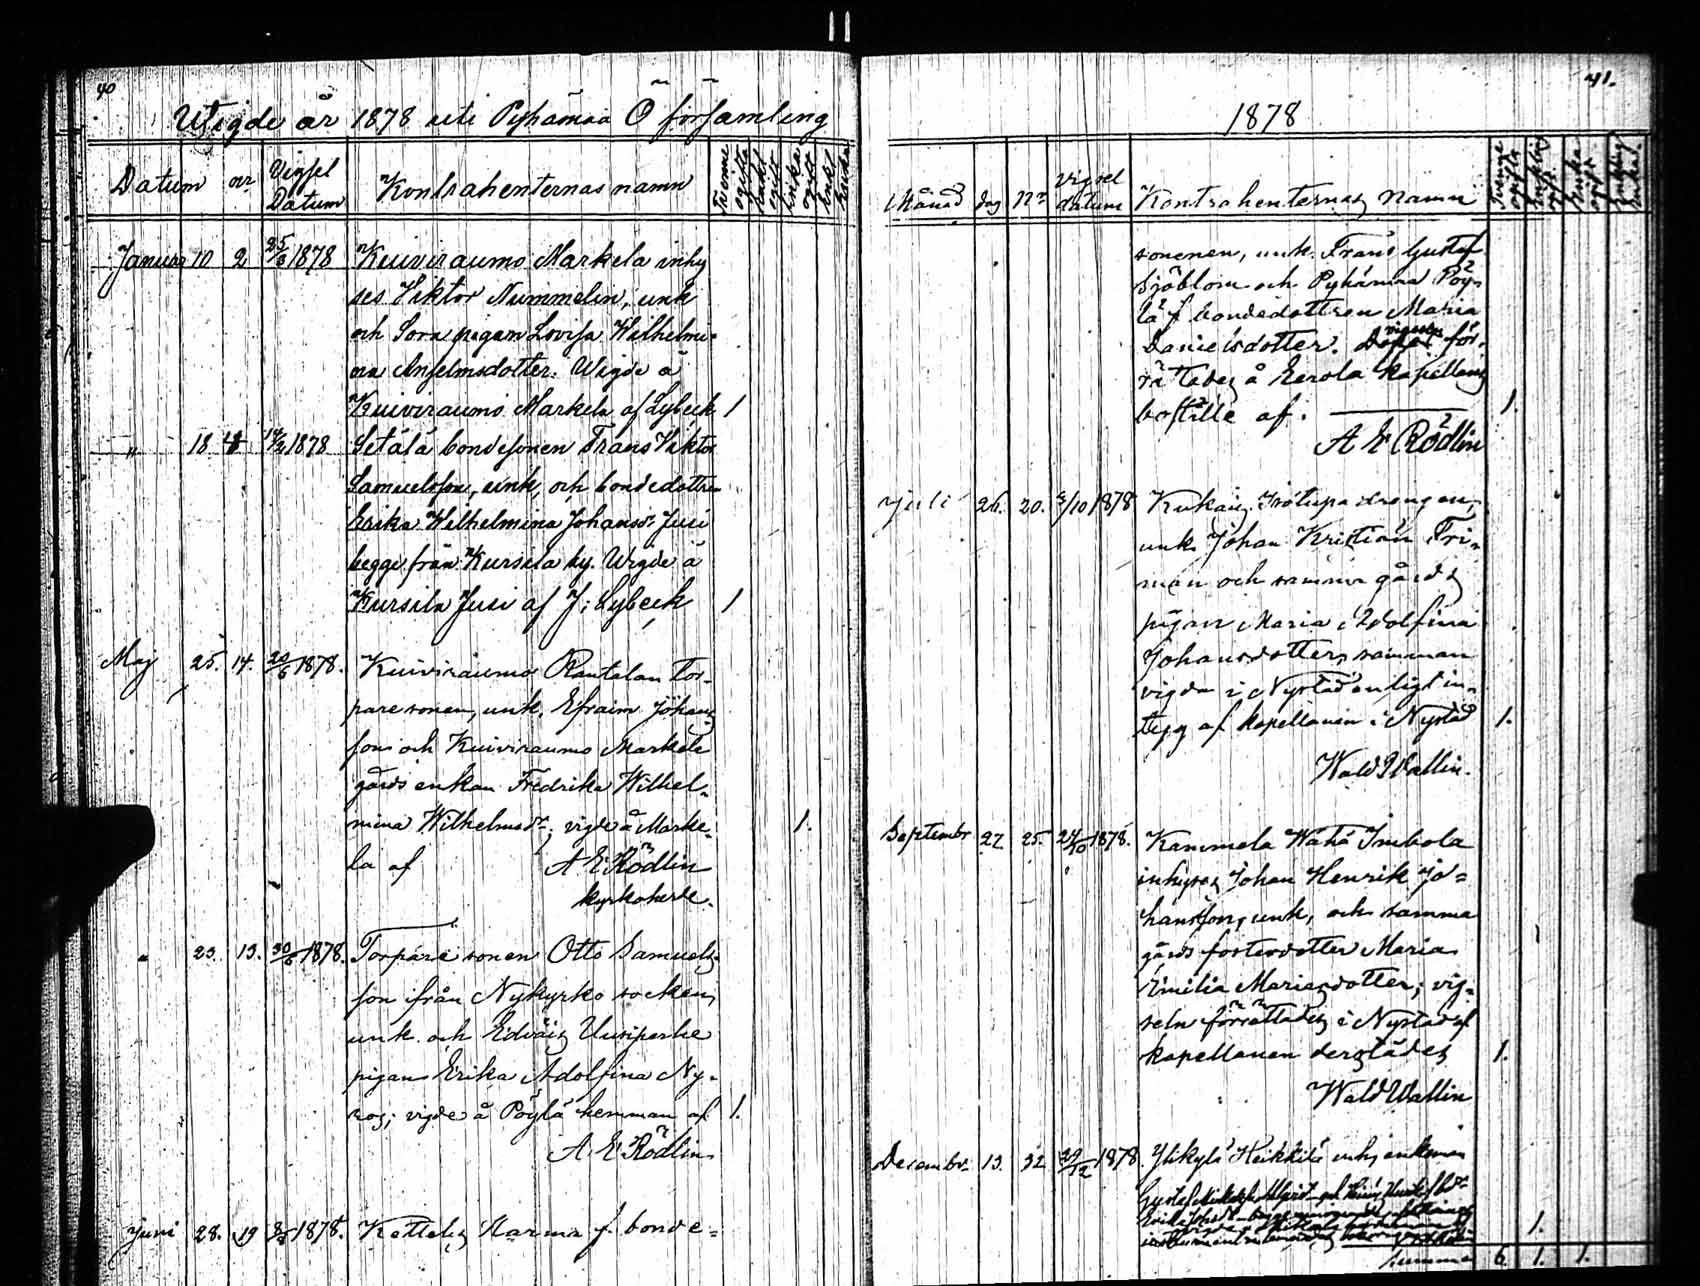 40
Utigde år 1878 uti Pyhämaa Ö församling
Datum nr Vigsel Datum Kontrahenternas namn
Januar 10 2 25/6 1878 Kuiviraumo Markela inhy
ses Viktor Nummelin, unk
och Sorn pigan Lovisa Wilhelmi
na Anselmsdotter. Wigde å
Kuiviraumo Markela af Lybeck 1
" 18 4 14/2 1878 Setälä bondesonen Frans Viktor
Samuelsson, unk, och bondedottren
Erika Wilhelmina Johansdr Jusi
begge från Kursila by. Wigde å
Kursila Jusi af J. Lybeck 1
Maj 25. 14. 20/6 1878. Kuiviraumo Rantalan Tor-
pare sonen, unk. Efraim Johans
son och Kuiviraumo Markela
gårds enkan Fredrika Wilhel-
mina Wilhelmsdr; vigde å Marke- 1.
la af A E Rödlin
kyrkoherde.
" 23. 13. 30/6 1878. Torpare sonen Otto Samuels
son ifrån Nykyrko socken,
unk. och Edväis Uusiperhe
pigan Erika Adolfina Ny-
roos; vigde å Pöylä hemman af 1.
A E Rödlin
Juni 28. 19 1878. Kettelis Harma f. bonde-
41.
1878
Månad dag Nr vigsel datum Kontrahenternas Namn
sonen, unk. Frans Gustaf
Sjöblom och Pyhämaa Pöy-
lä f bondedottren Maria
Danielsdotter. vigseln för-
rättades å Eerola kapellans
boställe af. 1.
A E Rödlin
Juli 26. 20. 3/10 1878 Kukais Isotupa drengen,
unk. Johan Kristian Fri-
man och samma gårds
pigan Maria Adolfina
Johansdotter, samman
vigda i Nystad enligt in-
tyg af kapellanen i Nystad 1.
Wald Wallin.
Septembr 27 25. 24/10 1878. Kammela Wähä Imbola
inhyses Johan Henrik Jo-
hansson, unk, och samma
gårds fosterdotter Maria
Emilia Mariasdotter; vig-
seln förrättades i Nystad af
kapellanen derstädes 1.
Wald Wallin
Decembr. 13. 32 29/12 1878. Ylikylä Heikkilä inhy enkman
1.
Summa 6. 1. 1.